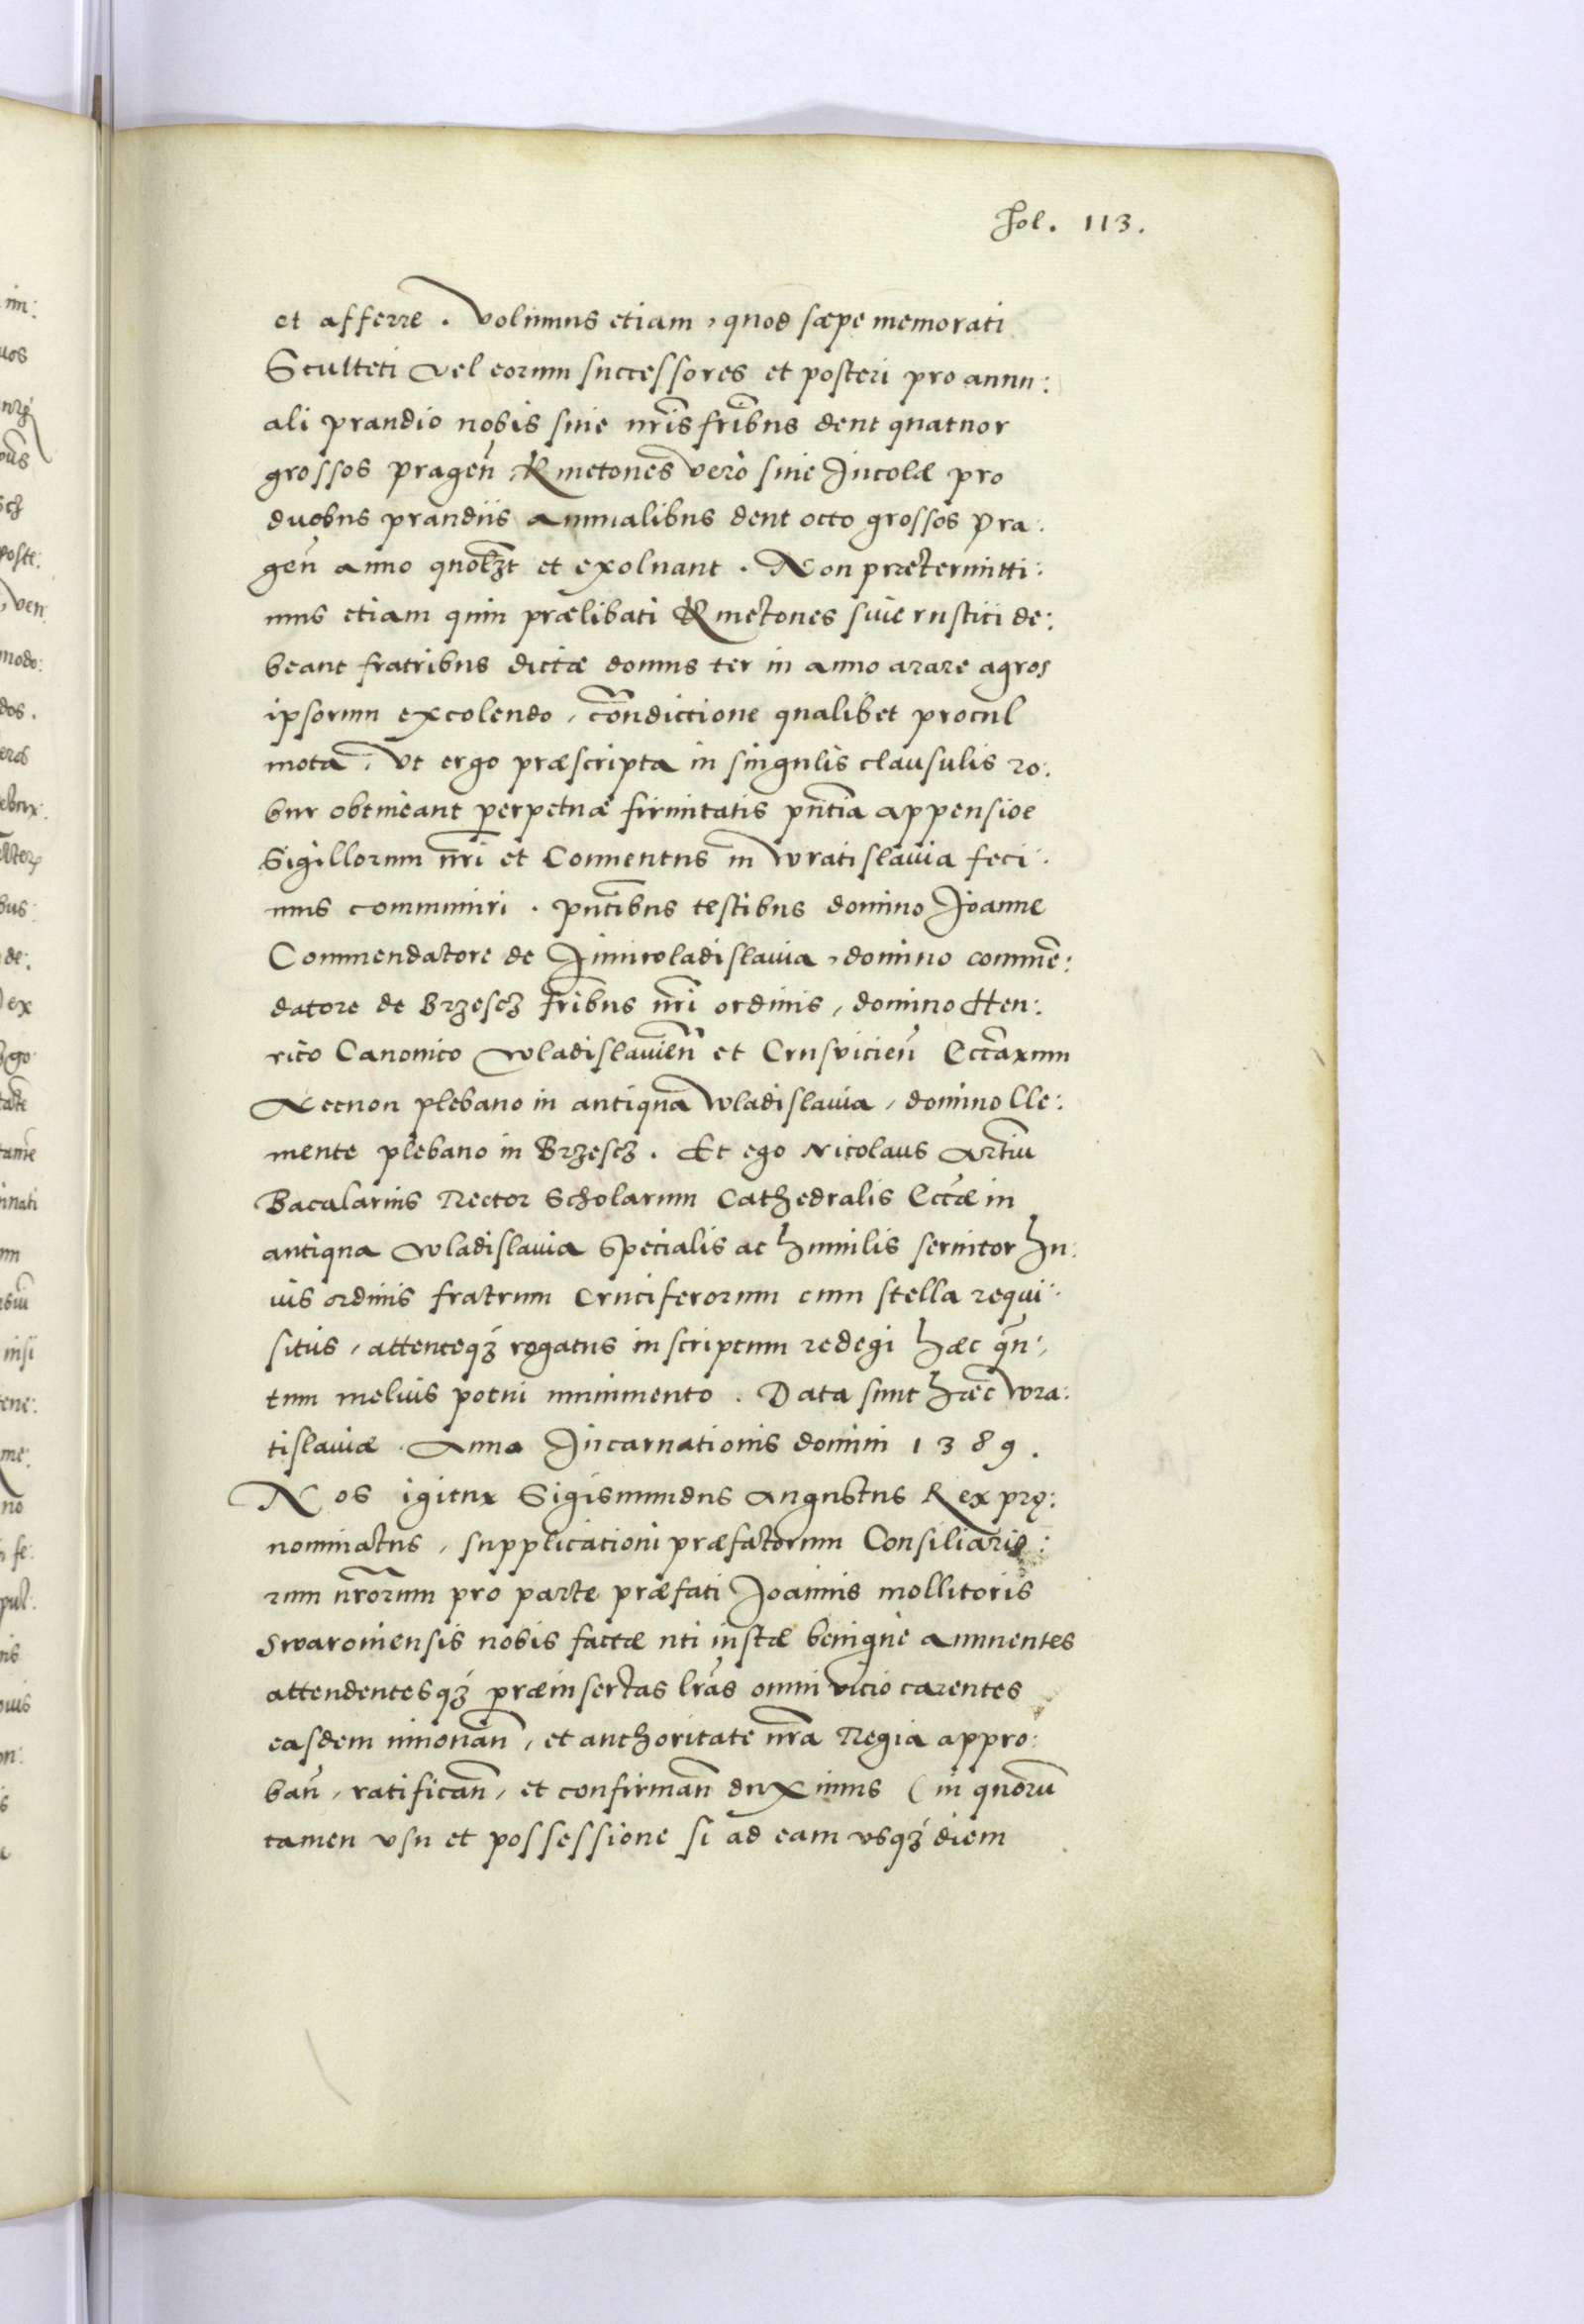 fol. 113.
et afferre. Volumus etiam, quod sæpe memorati
Sculteti vel eorum successores et posteri pro annu:
ali prandio nobis siue nr̃is fr̃ibus dent quatuor
grossos pragen̄, Kmetones verò siue Incolæ pro
duobus prandiis annualibus dent octo grossos Pra:
gen̄ anno quolꝫt et exoluant. Non prætermitti:
mus etiam quin prælibati Kmetones siue rustici de:
beant fratribus dictæ domus ter in anno arare agros
ipsorum excolendo, cōndictione qualibet procul
mota. Vt ergo præscripta in singulis clausulis ro:
bur obtineant perpetuæ firmitatis pñtia appensioe
Sigillorum nr̃i et Conuentus in Wratislauia feci:
mus communiri. Pñtibus testibus domino Joanne
Commendatore de Juniwladislauia, domino commē:
datore de Brzescz fr̃ibus nr̃i ordinis, domino Hen:
rico Canonico Wladislauien̄ et Crusvicien̄ Eccl̃arum
Necnon plebano in antiqua Wladislauia, domino Cle:
mente plebano in Brzescz. Et ego Nicolaus Artiū
Bacalarius Rector Scholarum Cathedralis Eccl̃æ in
antiqua Wladislauia Specialis ac humilis seruitor hu:
ius ordinis fratrum Cruciferorum cum stella requi:
situs, attenteqꝫ rogatus in scriptum redegi hæc qñ:
tum melius potui munimento. Data sunt hæc Wra:
tislauiæ. Anno Incarnationis domini 1389.
Nos igitur Sigismundus Augustus Rex prę:
nominatus, supplicationi præfatorum Consiliario:
rum nr̃orum pro parte præfati Joannis mollitoris
Swaroniensis nobis factæ uti iustæ benignè annuentes
attendentesqꝫ præinsertas lr̃as omni vicio carentes
easdem innouan̄, et authoritate nr̃a Regia appro:
ban̄, ratifican̄, et confirman̄ duximus (in quorū
tamen vsu et possessione si ad eam vsqꝫ diem